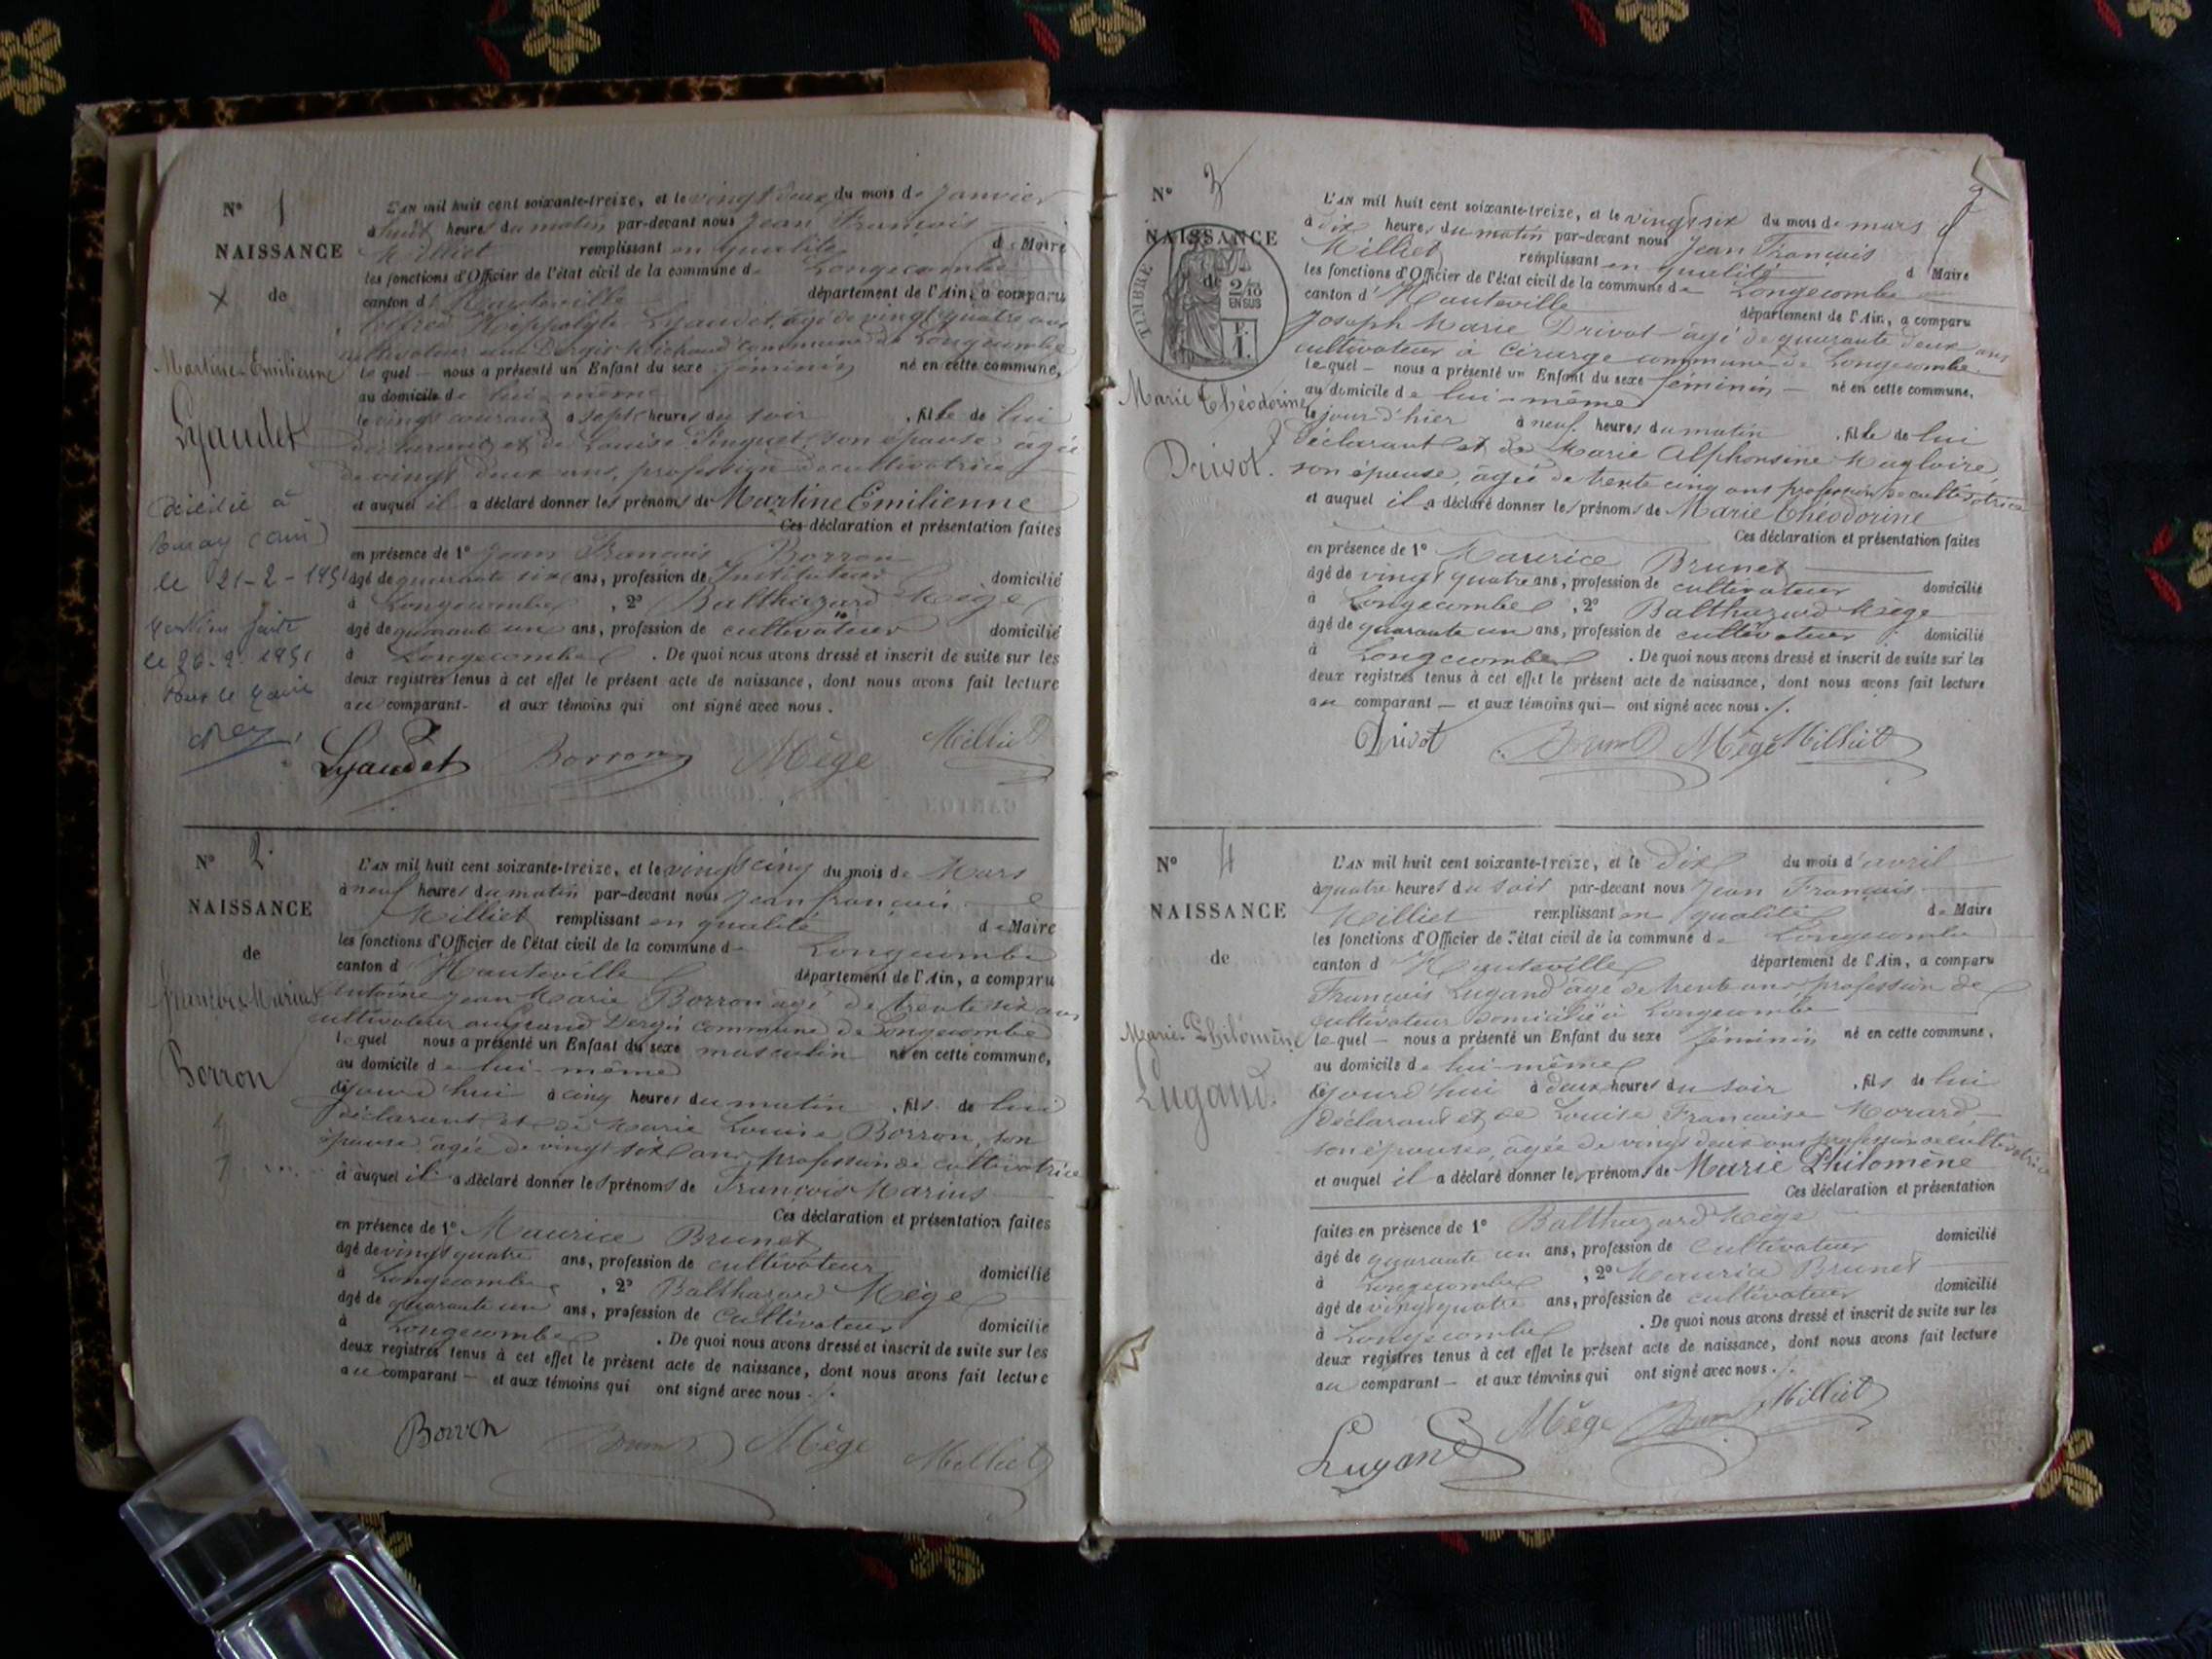 N° 1
NAISSANCE
de
Martine Emilienne
Lyaudet
décédée à
le 21-2-1951
le 26-2-1951
Pour le Maire
L'AN mil huit cent soixante-treize, et le vingt deux du mois de Janvier
à huit heures du matin par-devant nous Jean François
Milliet remplissant en qualité de Maire
les fonctions d'Officier de l'état civil de la commune de Longecombe
canton d' Hauteville département de l'Ain, a comparu
Alfred Hippolyte Lyaudet, âgé de vingt quatre ans
cultivateur commune de Longecombe
lequel — nous a présenté un Enfant du sexe féminin né en cette commune,
au domicile de lui-même
le vingt courant à sept heures du soir , fille de lui
déclarant et de Louise son épouse âgée
de vingt deux ans, profession de cultivatrice
et auquel il a déclaré donner les prénoms de Martine Emilienne
Ces déclaration et présentation faites
en présence de 1° Jean François Borron
âgé de quarante six ans, profession de Instituteur domicilié
à Longecombe , 2° Balthazard Mège
âgé de quarante un ans, profession de cultivateur domicilié
à Longecombe . De quoi nous avons dressé et inscrit de suite sur les
deux registres tenus à cet effet le présent acte de naissance, dont nous avons fait lecture
au comparant et aux témoins qui ont signé avec nous.
Lyaudet Borron Mège Milliet
N° 2
NAISSANCE
de
François Marius
Borron
L'AN mil huit cent soixante-treize, et le vingt cinq du mois de Mars
à neuf heures du matin par-devant nous Jean françois
Milliet remplissant en qualité de Maire
les fonctions d'Officier de l'état civil de la commune de Longecombe
canton d' Hauteville département de l'Ain, a comparu
Antoine Jean Marie Borron âgé de trente six ans
cultivateur au Grand Dergis commune de Longecombe
lequel nous a présenté un Enfant du sexe masculin né en cette commune,
au domicile de lui-même
jourd'hui à cinq heures du matin , fils de lui
déclarant et de Marie Louise Borron, son
épouse âgée de vingt six ans profession de cultivatrice
et auquel il a déclaré donner les prénoms de François Marius
Ces déclaration et présentation faites
en présence de 1° Maurice Brunet
âgé de vingt quatre ans, profession de cultivateur domicilié
à Longecombe , 2° Balthazard Mège
âgé de quarante un ans, profession de cultivateur domicilié
à Longecombe . De quoi nous avons dressé et inscrit de suite sur les
deux registres tenus à cet effet le présent acte de naissance, dont nous avons fait lecture
au comparant — et aux témoins qui ont signé avec nous.
Borron Brunet Mège Milliet
N° 3
NAISSANCE
de
TIMBRE
2/10
EN SUS
Marie Théodorine
Drivot.
L'AN mil huit cent soixante-treize, et le vingt six du mois de mars
à dix heures du matin par-devant nous Jean François
Milliet remplissant en qualité d Maire
les fonctions d'Officier de l'état civil de la commune de Longecombe
canton d' Hauteville département de l'Ain, a comparu
Joseph Marie Drivot âgé de quarante deux ans
cultivateur à Cirarge commune de Longecombe
lequel — nous a présenté un Enfant du sexe féminin — né en cette commune,
au domicile de lui-même
le jour d'hier à neuf heures du matin , fille de lui
déclarant et de Marie Alphonsine Magloire,
son épouse, âgée de trente cinq ans profession de cultivatrice
et auquel il a déclaré donner les prénoms de Marie Théodorine
Ces déclaration et présentation faites
en présence de 1° Maurice Brunet
âgé de vingt quatre ans, profession de cultivateur domicilié
à Longecombe , 2° Balthazard Mège
âgé de quarante un ans, profession de cultivateur domicilié
à Longecombe . De quoi nous avons dressé et inscrit de suite sur les
deux registres tenus à cet effet le présent acte de naissance, dont nous avons fait lecture
au comparant — et aux témoins qui — ont signé avec nous.
Drivot Brunet Mège Milliet
N° 4
NAISSANCE
de
Marie Philomène
Lugand.
L'AN mil huit cent soixante-treize, et le dix du mois d'avril
à quatre heures du soir par-devant nous Jean François
Milliet remplissant en qualité de Maire
les fonctions d'Officier de l'état civil de la commune de Longecombe
canton d Hauteville département de l'Ain, a comparu
François Lugand âgé de trente ans profession de
cultivateur domicilié à Longecombe
lequel — nous a présenté un Enfant du sexe féminin né en cette commune,
au domicile de lui-même
jourd'hui à deux heures du soir , fils de lui
déclarant et de Louise Françoise Morard
son épouse, âgée de vingt deux ans profession de cultivatrice
et auquel il a déclaré donner les prénoms de Marie Philomène
Ces déclaration et présentation
faites en présence de 1° Balthazard Mège
âgé de quarante un ans, profession de cultivateur domicilié
à Longecombe , 2° Maurice Brunet
âgé de vingt quatre ans, profession de cultivateur domicilié
à Longecombe . De quoi nous avons dressé et inscrit de suite sur les
deux registres tenus à cet effet le présent acte de naissance, dont nous avons fait lecture
au comparant — et aux témoins qui ont signé avec nous.
Lugand Mège Brunet Milliet